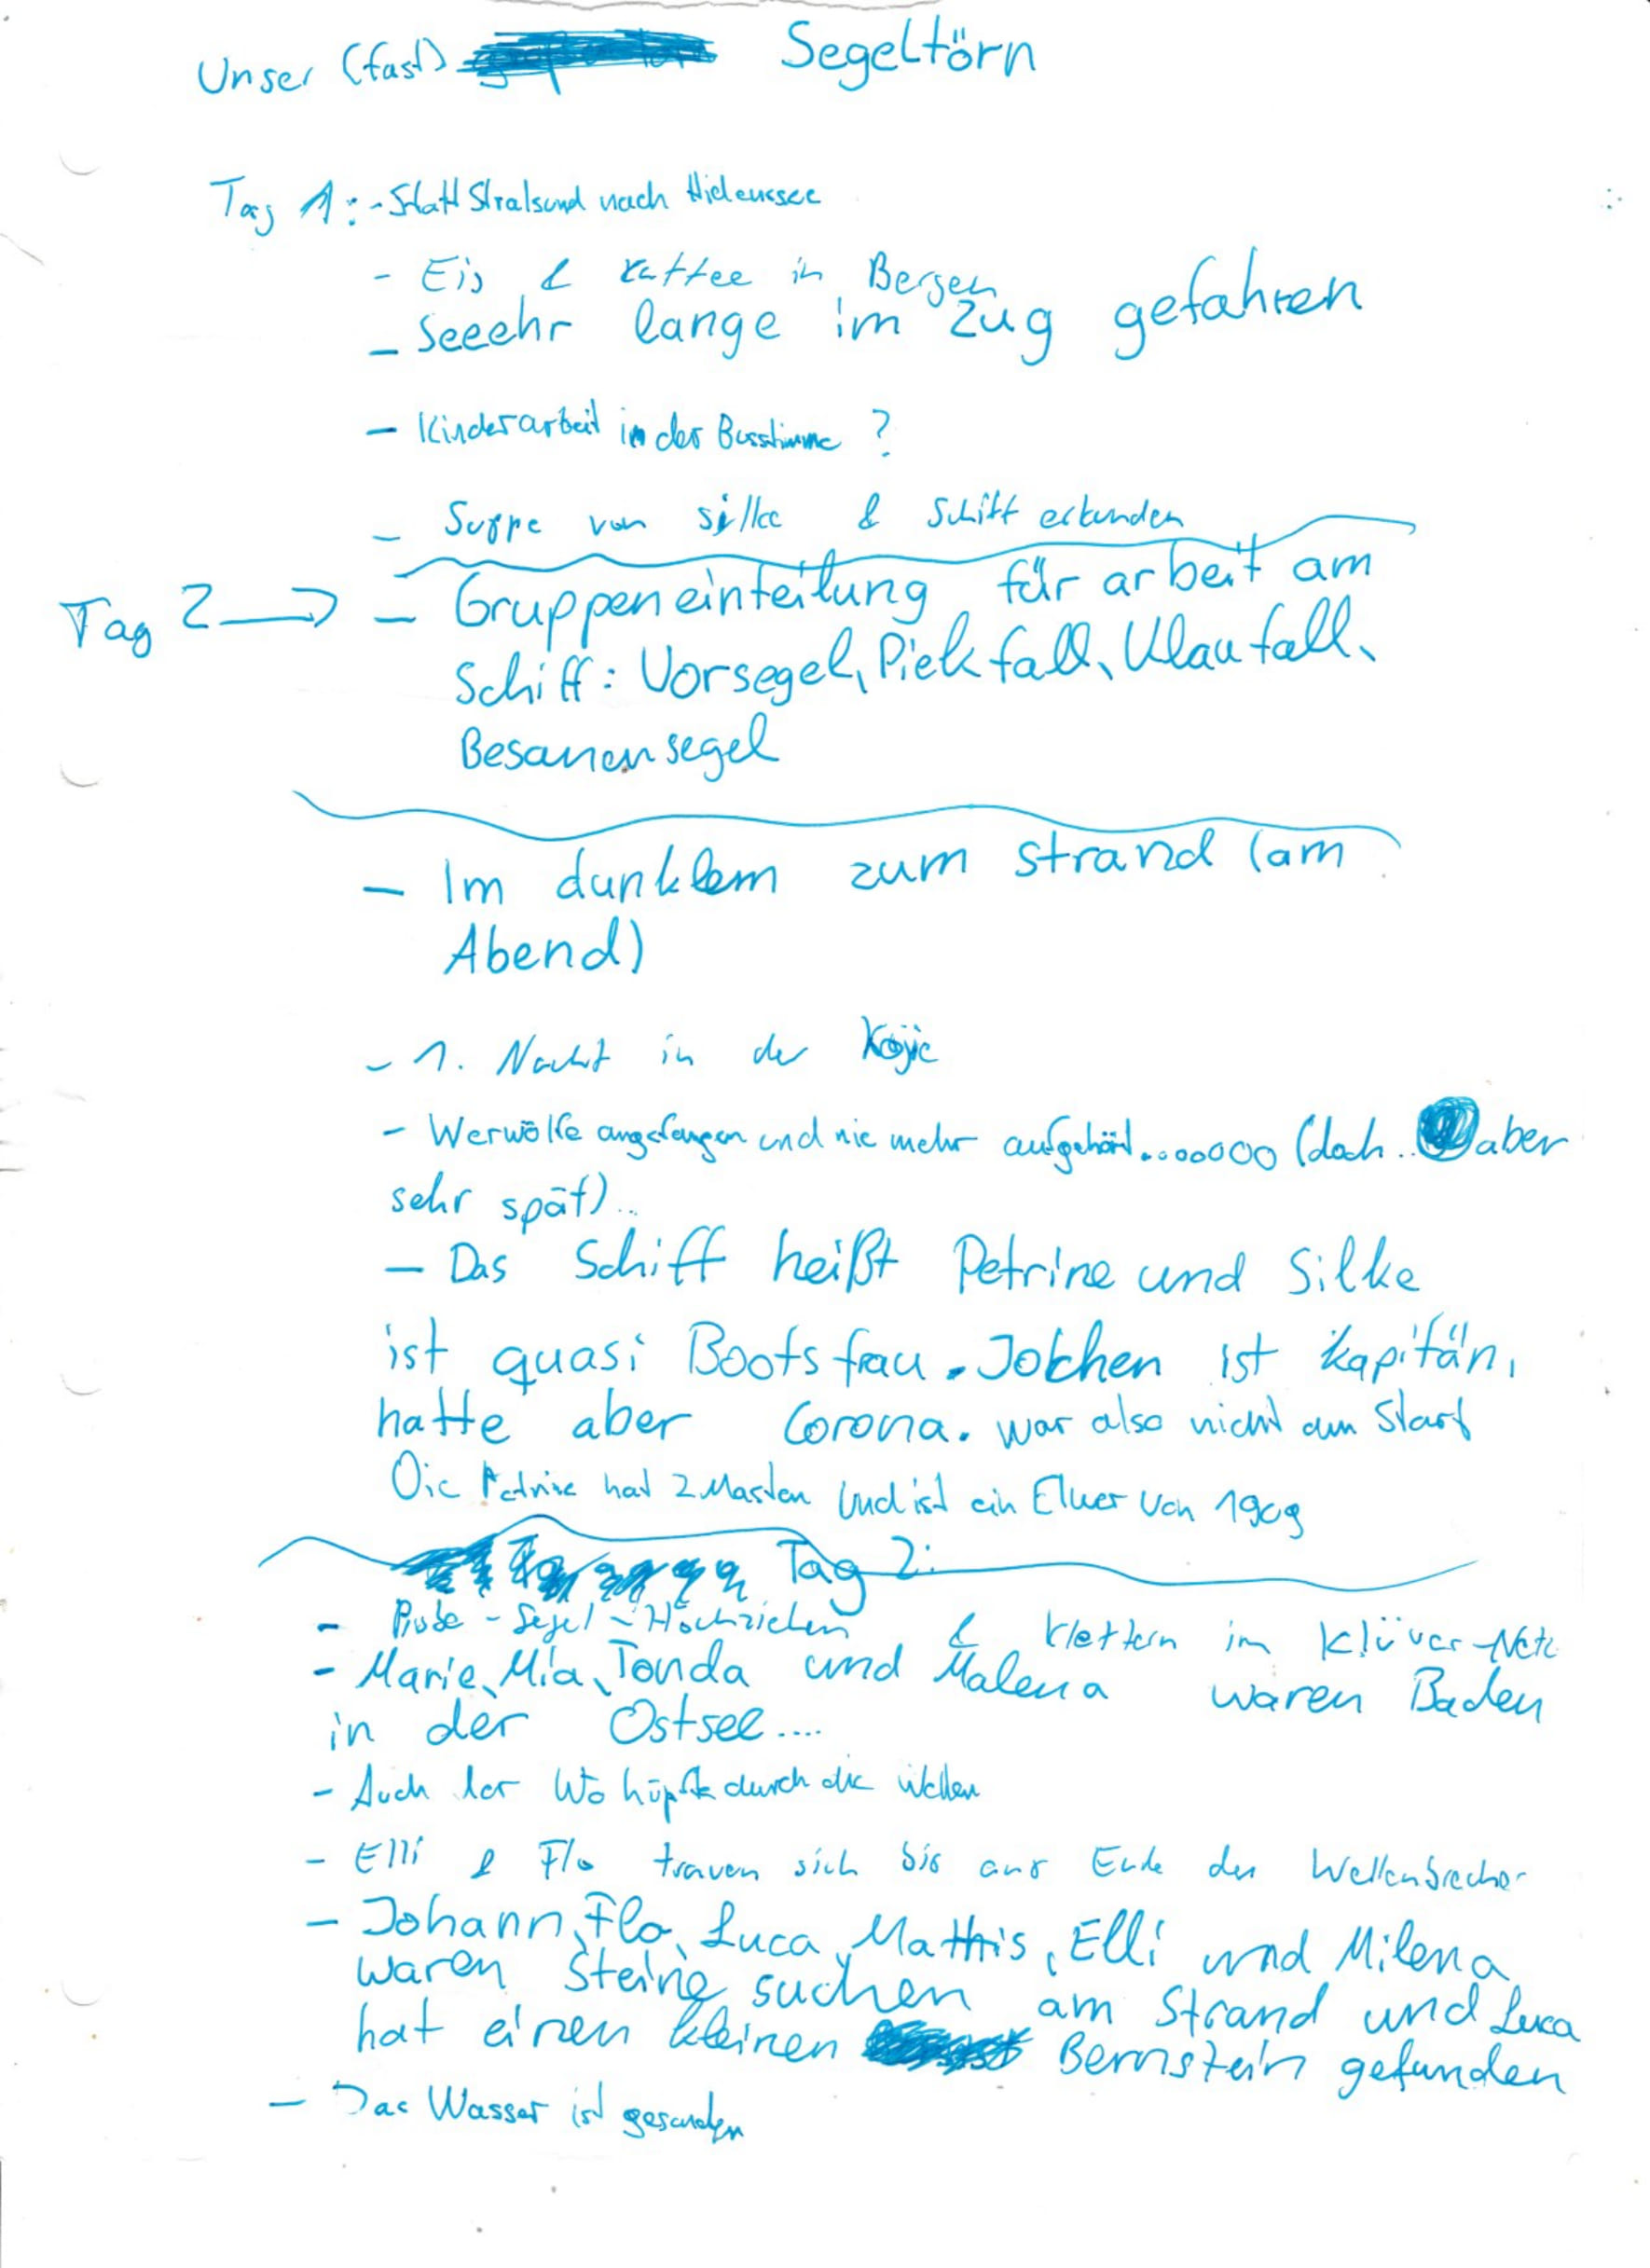 Unser (fast) Segeltörn
Tag 1: - Statt Stralsund nach Hidensee
- Eis & Kaffee in Bergen
- Seeehr lange im Zug gefahren
- Kinderarbeit in der ?
- Suppe von Silke & Schiff erkunden
Tag 2 → - Gruppeneinteilung für arbeit am
Schiff: Vorsegel, Piekfall, Klaufall,
Besanensegel
- Im dunklem zum strand (am
Abend)
- 1. Nacht in der Koje
- Werwölfe angefangen und nie mehr aufgehört........ (doch.. aber
sehr spät)...
- Das Schiff heißt Petrine und Silke
ist quasi Bootsfrau. Jochen ist Kapitän,
hatte aber Corona. war also nicht am Start
Die Petrine hat 2 Masten und ist ein Ewer von 1909
Tag 2:
- Probe-Segel-Hochziehen & klettern im Klüver-Netz
- Marie, Mia, Tonda und Malena waren Baden
in der Ostsee....
- Auch hüpfte durch die Wellen
- Elli & Flo trauen sich bis ans Ende der Wellenbrecher
- Johann, Flo, Luca, Mathis, Elli und Milena
waren Steine suchen am Strand und Luca
hat einen kleinen Bernstein gefunden
- Das Wasser ist